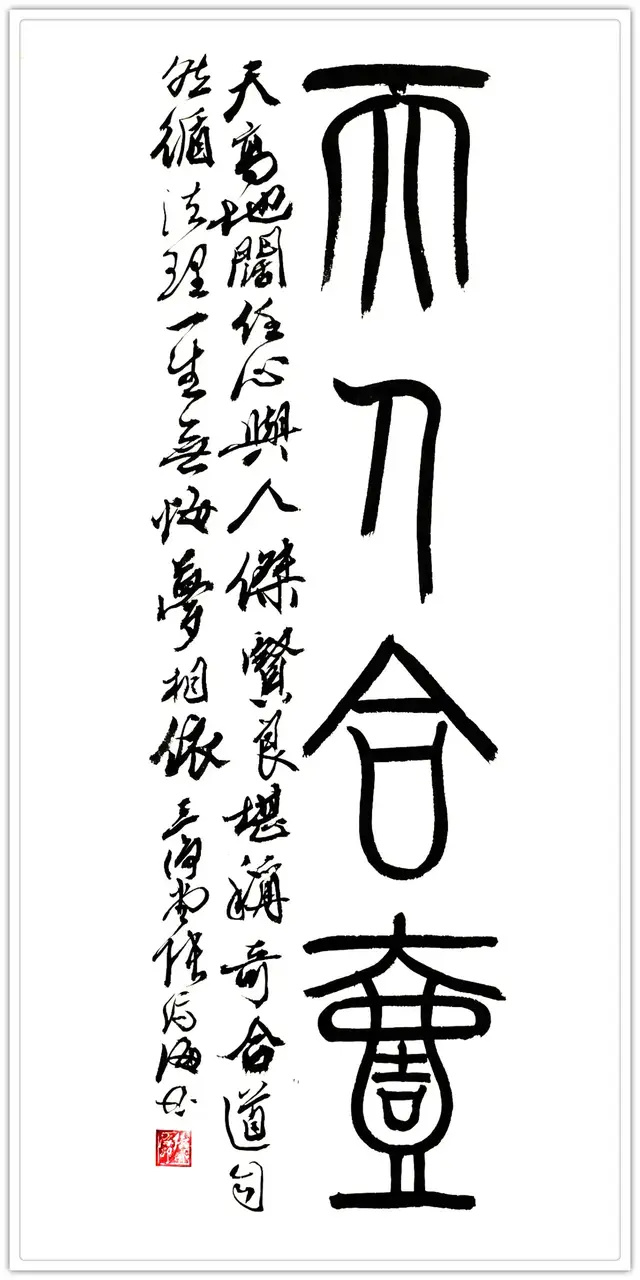 天人合壹
天高地闊任心與人傑賢良堪稱奇合道自
然循法理一生無悔夢相依三堂張海書